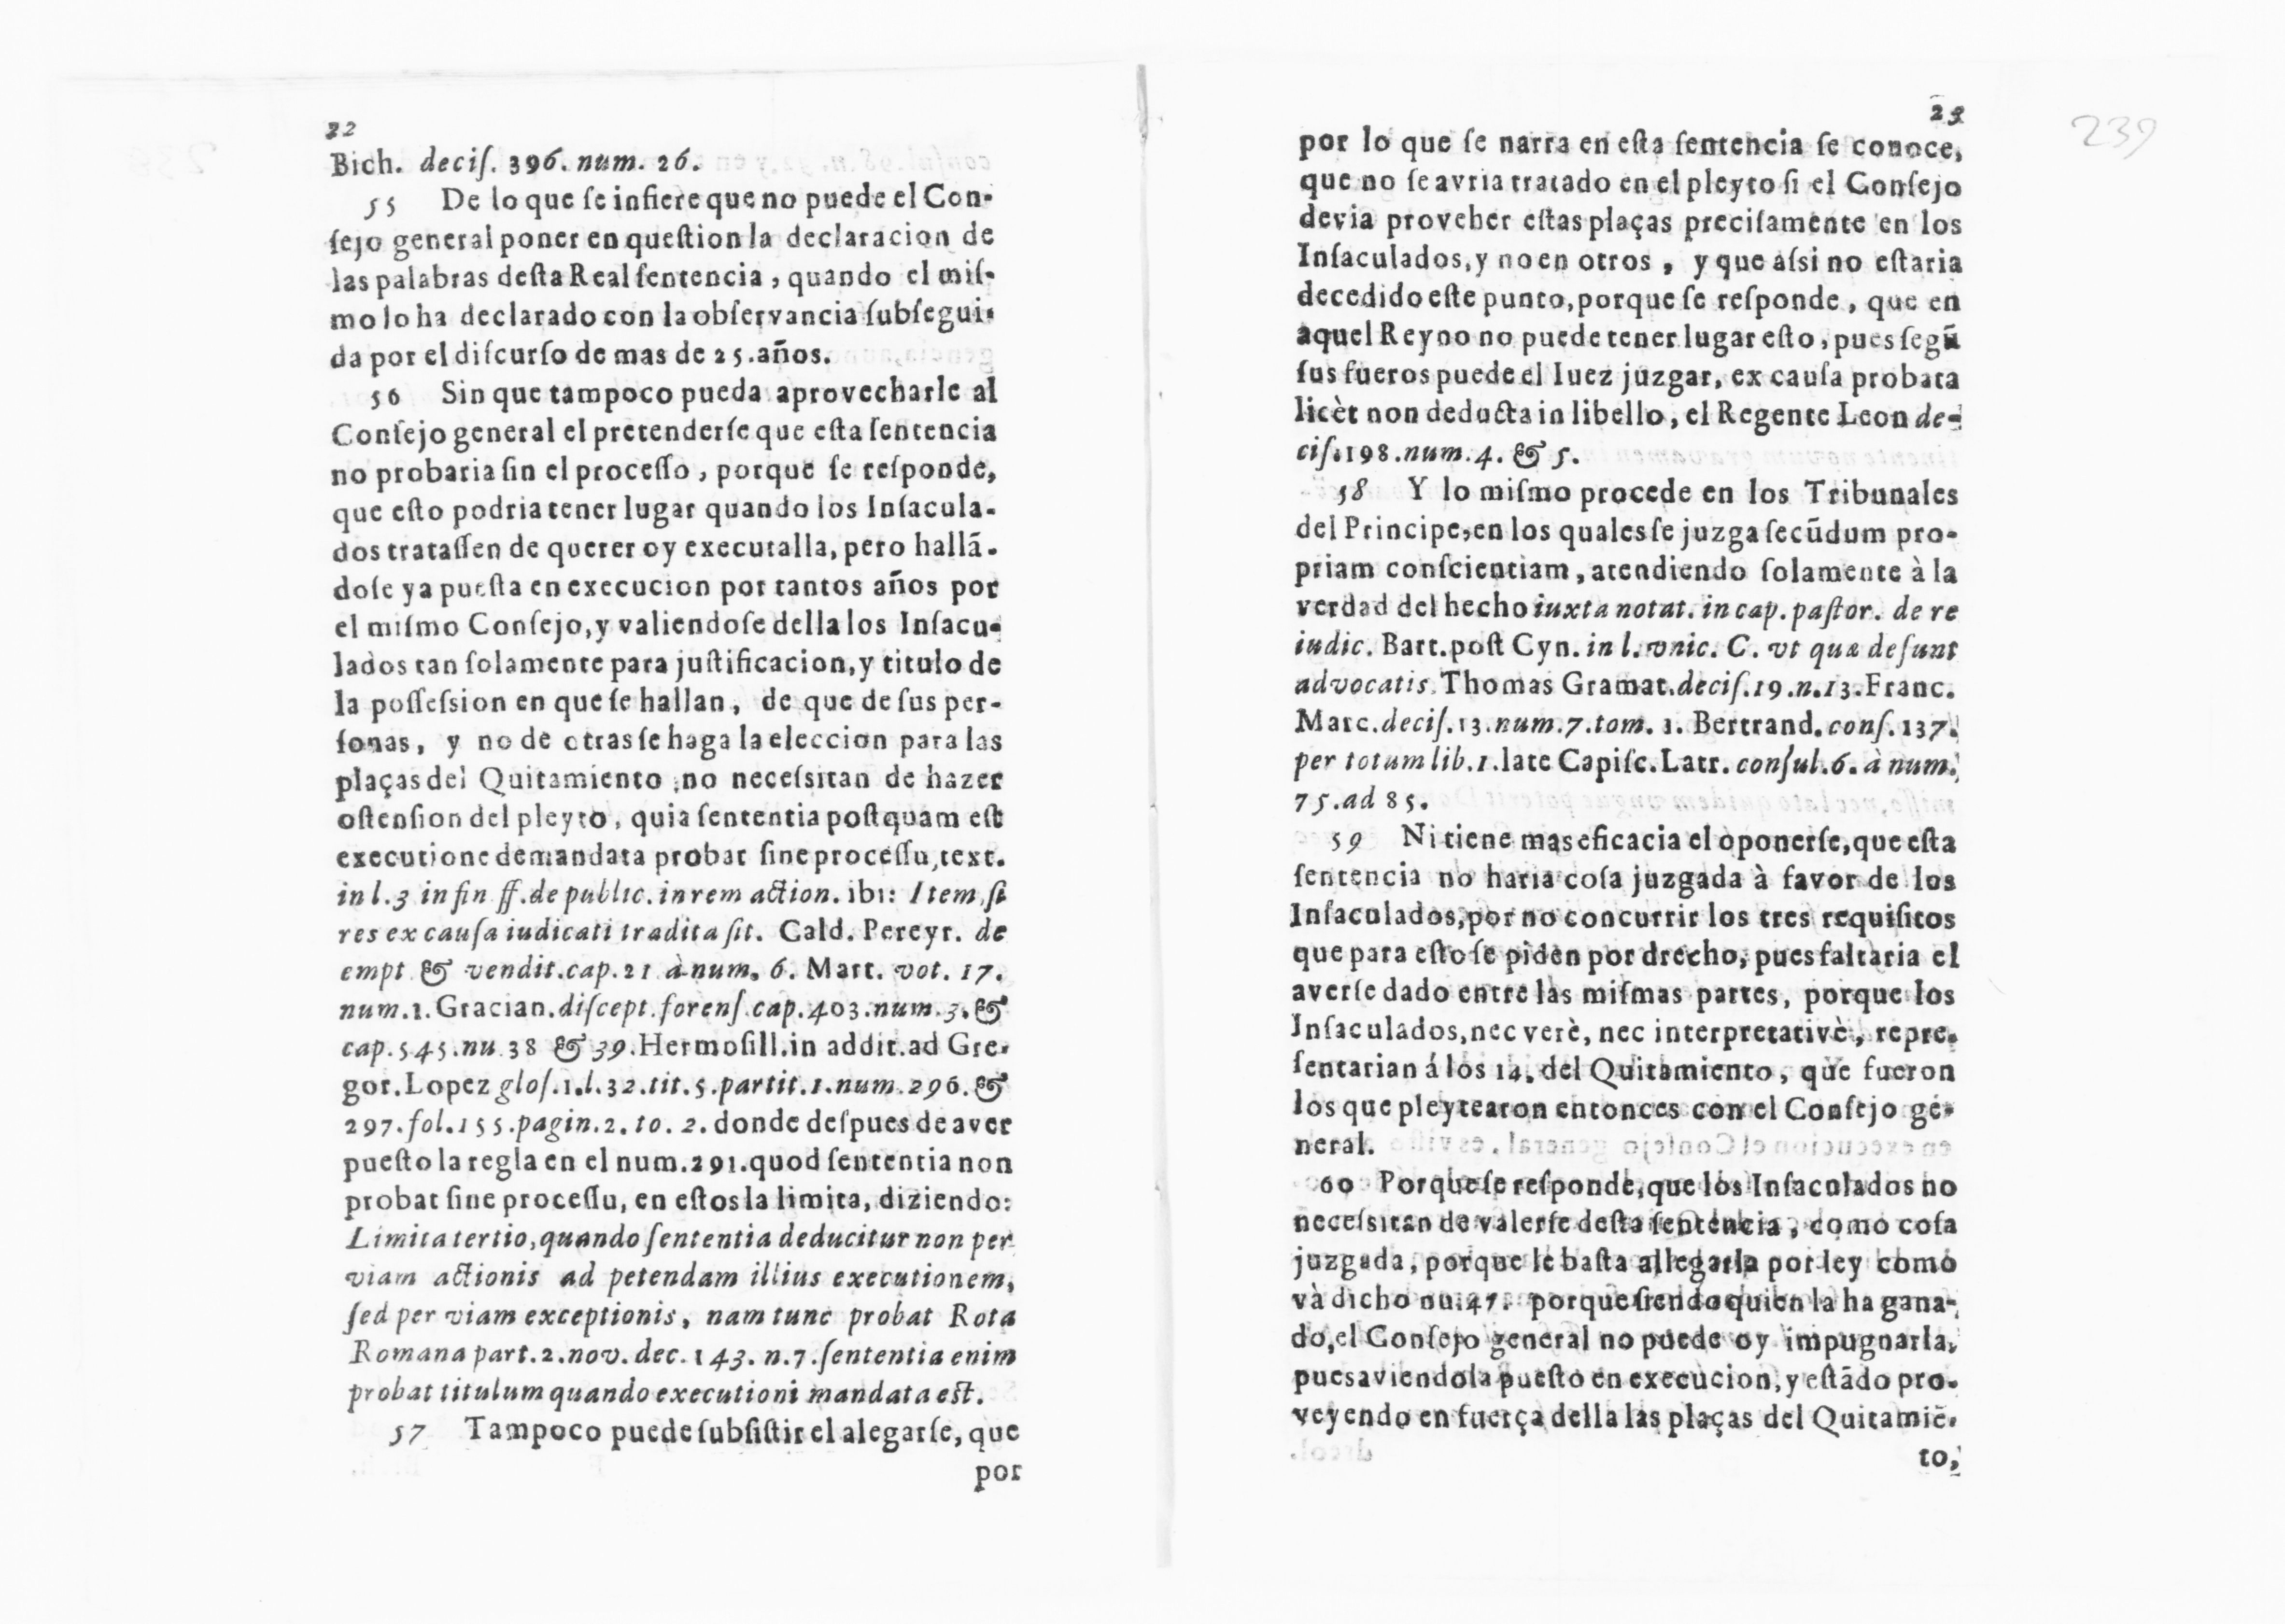 22
Bich. deciſ. 396. num. 26.
55 De lo que ſe infiere que no puede el Con-
ſejo general poner en queſtion la declaracion de
las palabras deſta Real ſentencia, quando el miſ-
mo lo ha declarado con la obſervancia ſubſegui-
da por el diſcurſo de mas de 25. años.
56 Sin que tampoco pueda aprovecharle al
Conſejo general el pretenderſe que eſta ſentencia
no probaria ſin el proceſſo, porque ſe reſponde,
que eſto podria tener lugar quando los Inſacula-
dos trataſſen de querer oy executalla, pero hallã-
doſe ya pueſta en execucion por tantos años por
el miſmo Conſejo, y valiendoſe della los Inſacu-
lados tan ſolamente para juſtificacion, y titulo de
la poſſeſsion en que ſe hallan, de que de ſus per-
ſonas, y no de otras ſe haga la eleccion para las
plaças del Quitamiento, no neceſsitan de hazer
oſtenſion del pleyto, quia ſententia poſtquam eſt
executione demandata probat ſine proceſſu, text.
in l. 3 in fin ff. de public. in rem action. ibi: Item, ſi
res ex cauſa iudicati tradita ſit. Cald. Pereyr. de
empt & vendit. cap. 21 à num. 6. Mart. vot. 17.
num. 1. Gracian. diſcept. forenſ. cap. 403. num. 3. &
cap. 545. nu. 38 & 39. Hermoſill. in addit. ad Gre-
gor. Lopez gloſ. 1. l. 32. tit. 5. partit. 1. num. 296. &
297. fol. 155. pagin. 2. to. 2. donde deſpues de aver
pueſto la regla en el num. 291. quod ſententia non
probat ſine proceſſu, en eſtos la limita, diziendo:
Limita tertio, quando ſententia deducitur non per
viam actionis ad petendam illius executionem,
ſed per viam exceptionis, nam tunc probat Rota
Romana part. 2. nov. dec. 143. n. 7. ſententia enim
probat titulum quando executioni mandata eſt.
57 Tampoco puede ſubſiſtir el alegarſe, que
por
23
239
por lo que ſe narra en eſta ſentencia ſe conoce,
que no ſe avria tratado en el pleyto ſi el Conſejo
devia proveher eſtas plaças preciſamente en los
Inſaculados, y no en otros, y que aſsi no eſtaria
decedido eſte punto, porque ſe reſponde, que en
aquel Reyno no puede tener lugar eſto, pues ſegũ
ſus fueros puede el Iuez juzgar, ex cauſa probata
licèt non deducta in libello, el Regente Leon de-
ciſ. 198. num. 4. & 5.
58 Y lo miſmo procede en los Tribunales
del Principe, en los quales ſe juzga ſecũdum pro-
priam conſcientiam, atendiendo ſolamente à la
verdad del hecho iuxta notat. in cap. paſtor. de re
iudic. Bart. poſt Cyn. in l. vnic. C. vt quæ deſunt
advocatis. Thomas Gramat. deciſ. 19. n. 13. Franc.
Marc. deciſ. 13. num. 7. tom. 1. Bertrand. conſ. 137.
per totum lib. 1. late Capiſc. Latr. conſul. 6. à num.
75. ad 85.
59 Ni tiene mas eficacia el oponerſe, que eſta
ſentencia no haria coſa juzgada à favor de los
Inſaculados, por no concurrir los tres requiſitos
que para eſto ſe piden por drecho, pues faltaria el
averſe dado entre las miſmas partes, porque los
Inſaculados, nec verè, nec interpretativè, repre-
ſentarian á los 14. del Quitamiento, que fueron
los que pleytearon entonces con el Conſejo ge-
neral.
60 Porque ſe reſponde, que los Inſaculados no
neceſsitan de valerſe deſta ſentencia, como coſa
juzgada, porque le baſta allegarla por ley como
và dicho nu. 47. porque ſiendo quien la ha gana-
do, el Conſejo general no puede oy impugnarla,
pues aviendola pueſto en execucion, y eſtãdo pro-
veyendo en fuerça della las plaças del Quitamiẽ-
to,